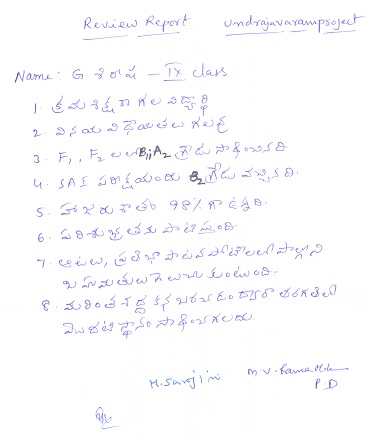 Review Report Undrajavaram project
Name: G శిరీష - IX class
1. క్రమశిక్షణ గల విద్యార్థి
2. వినయ విధేయతలు గలవు
3. F1, F2 లలో B1, A2 గ్రేడు సాధించినది.
4. SAI పరీక్షయందు B2 గ్రేడు వచ్చినది.
5. హాజరు శాతం 98% గా ఉన్నది.
6. పరిశుభ్రతను పాటిస్తుంది.
7. ఆటలు, ప్రతిభా పాటవ పోటీలలో పాల్గొని
బహుమతులు గెలుచుకుంటుంది.
8. మరింత శ్రద్ధ కనబరచడం ద్వారా తరగతిలో
మొదటి స్థానం సాధించగలదు.
M. Sarojini M.V. Rama
P D